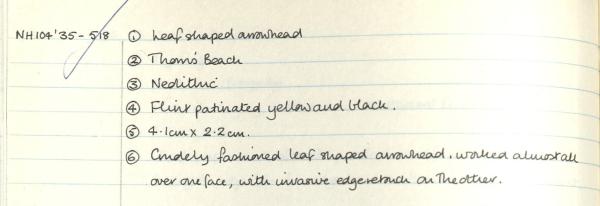 NH104'35-518 ① Leaf shaped arrowhead
② Thorn's Beach
③ Neolithic
④ Flint patinated yellow and black.
⑤ 4.1cm x 2.2cm.
⑥ Crudely fashioned leaf shaped arrowhead, worked almost all
over one face, with invasive edge retouch on the other.